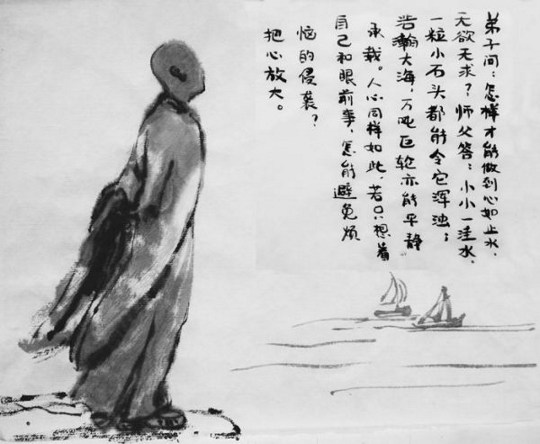 弟子问：怎样才能做到心如止水、
无欲无求？师父答：小小一洼水，
一粒小石头都能令它浑浊；
浩瀚大海，万吨巨轮亦能平静
承载。人心同样如此，若只想着
自己和眼前事，怎能避免烦
恼的侵袭？
把心放大。